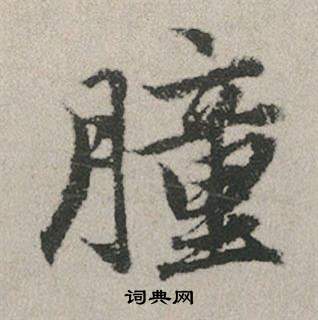 朣
词典网